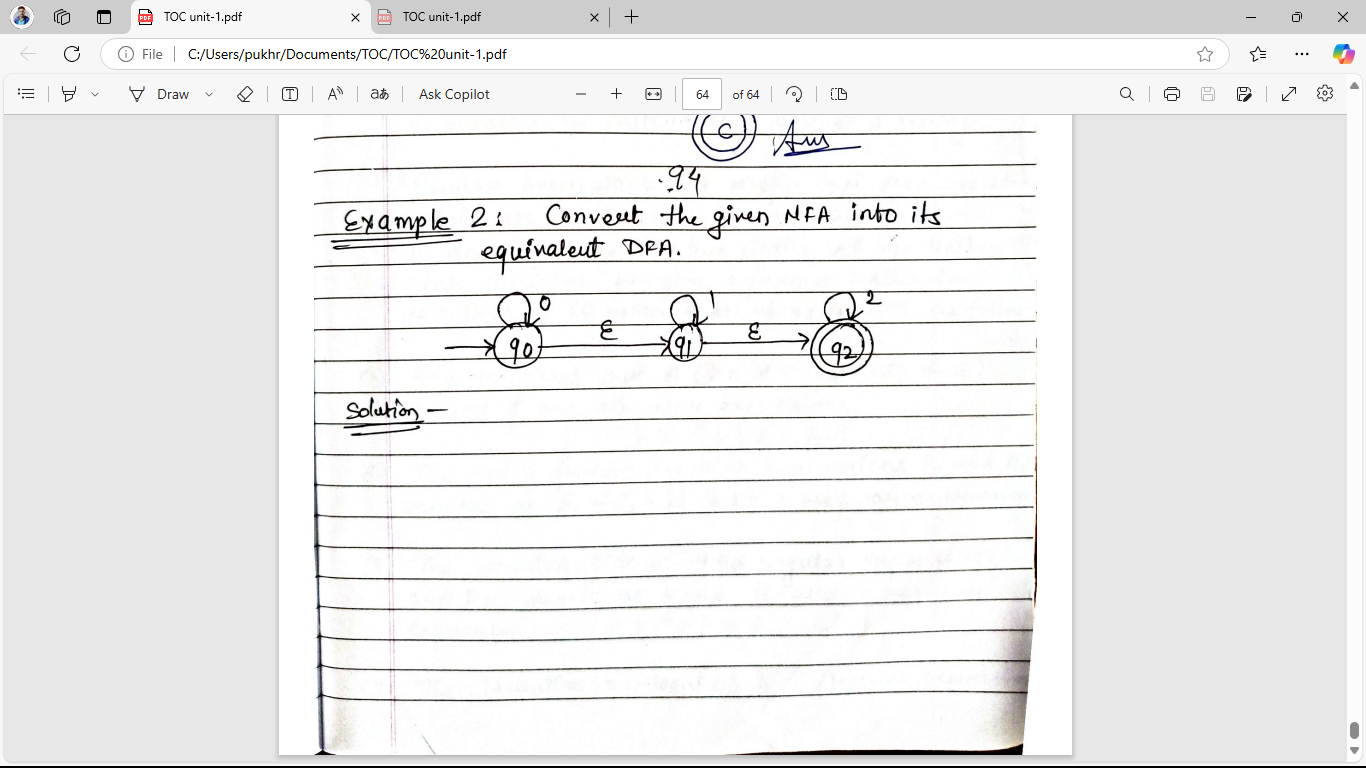 TOC unit-1.pdf
TOC unit-1.pdf
File
C:/Users/pukhr/Documents/TOC/TOC%20unit-1.pdf
Draw
Ask Copilot
64 of 64
C Ans
94
Example 2: Convert the given NFA into its
equivalent DFA.
0 1 2
ε ε
q0 q1 q2
Solution —